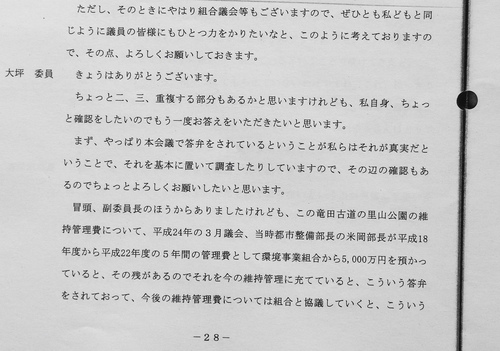 ただし、そのときにやはり組合議会等もございますので、ぜひとも私どもと同
じように議員の皆様にもひとつ力をかりたいなと、このように考えておりますの
で、その点、よろしくお願いしておきます。
大坪 委員 きょうはありがとうございます。
ちょっと二、三、重複する部分もあるかと思いますけれども、私自身、ちょっ
と確認をしたいのでもう一度お答えをいただきたいと思います。
まず、やっぱり本会議で答弁をされているということが私らはそれが真実だと
いうことで、それを基本に置いて調査したりしていますので、その辺の確認もあ
るのでちょっとよろしくお願いしたいと思います。
冒頭、副委員長のほうからありましたけれども、この竜田古道の里山公園の維
持管理費について、平成24年の3月議会、当時都市整備部長の米岡部長が平成18
年度から平成22年度の5年間の管理費として環境事業組合から5,000万円を預かっ
ていると、その残があるのでそれを今の維持管理に充てていると、こういう答弁
をされておって、今後の維持管理費については組合と協議していくと、こういう
－28－